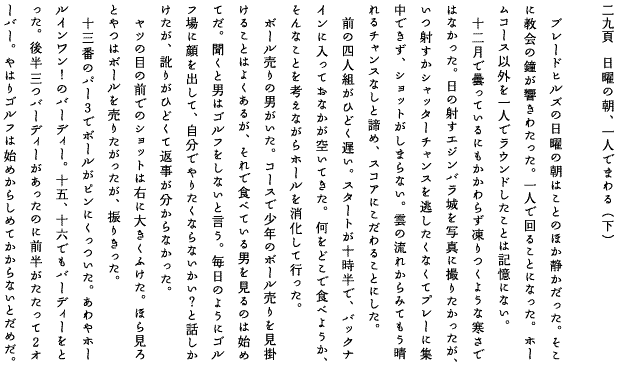 二九頁　日曜の朝、一人でまわる（下）
　ブレードヒルズの日曜の朝はことのほか静かだった。そこ
に教会の鐘が響きわたった。一人で回ることになった。ホー
ムコース以外を一人でラウンドしたことは記憶にない。
　十二月で曇っているにもかかわらず凍りつくような寒さで
はなかった。日の射すエジンバラ城を写真に撮りたかったが、
いつ射すかシャッターチャンスを逃したくなくてプレーに集
中できず、ショットがしまらない。雲の流れからみてもう晴
れるチャンスなしと諦め、スコアにこだわることにした。
　前の四人組がひどく遅い。スタートが十時半で、バックナ
インに入っておなかが空いてきた。何をどこで食べようか、
そんなことを考えながらホールを消化して行った。
　ボール売りの男がいた。コースで少年のボール売りを見掛
けることはよくあるが、それで食べている男を見るのは始め
てだ。聞くと男はゴルフをしないと言う。毎日のようにゴル
フ場に顔を出して、自分でやりたくならないかい？と話しか
けたが、訛りがひどくて返事が分からなかった。
　ヤツの目の前でのショットは右に大きくふけた。ほら見ろ
とやつはボールを売りたがったが、振りきった。
　十三番のパー3でボールがピンにくっついた。あわやホー
ルインワン！のバーディー。十五、十六でもバーディーをと
った。後半三つバーディーがあったのに前半がたたって2オ
ーバー。やはりゴルフは始めからしめてかからないとだめだ。